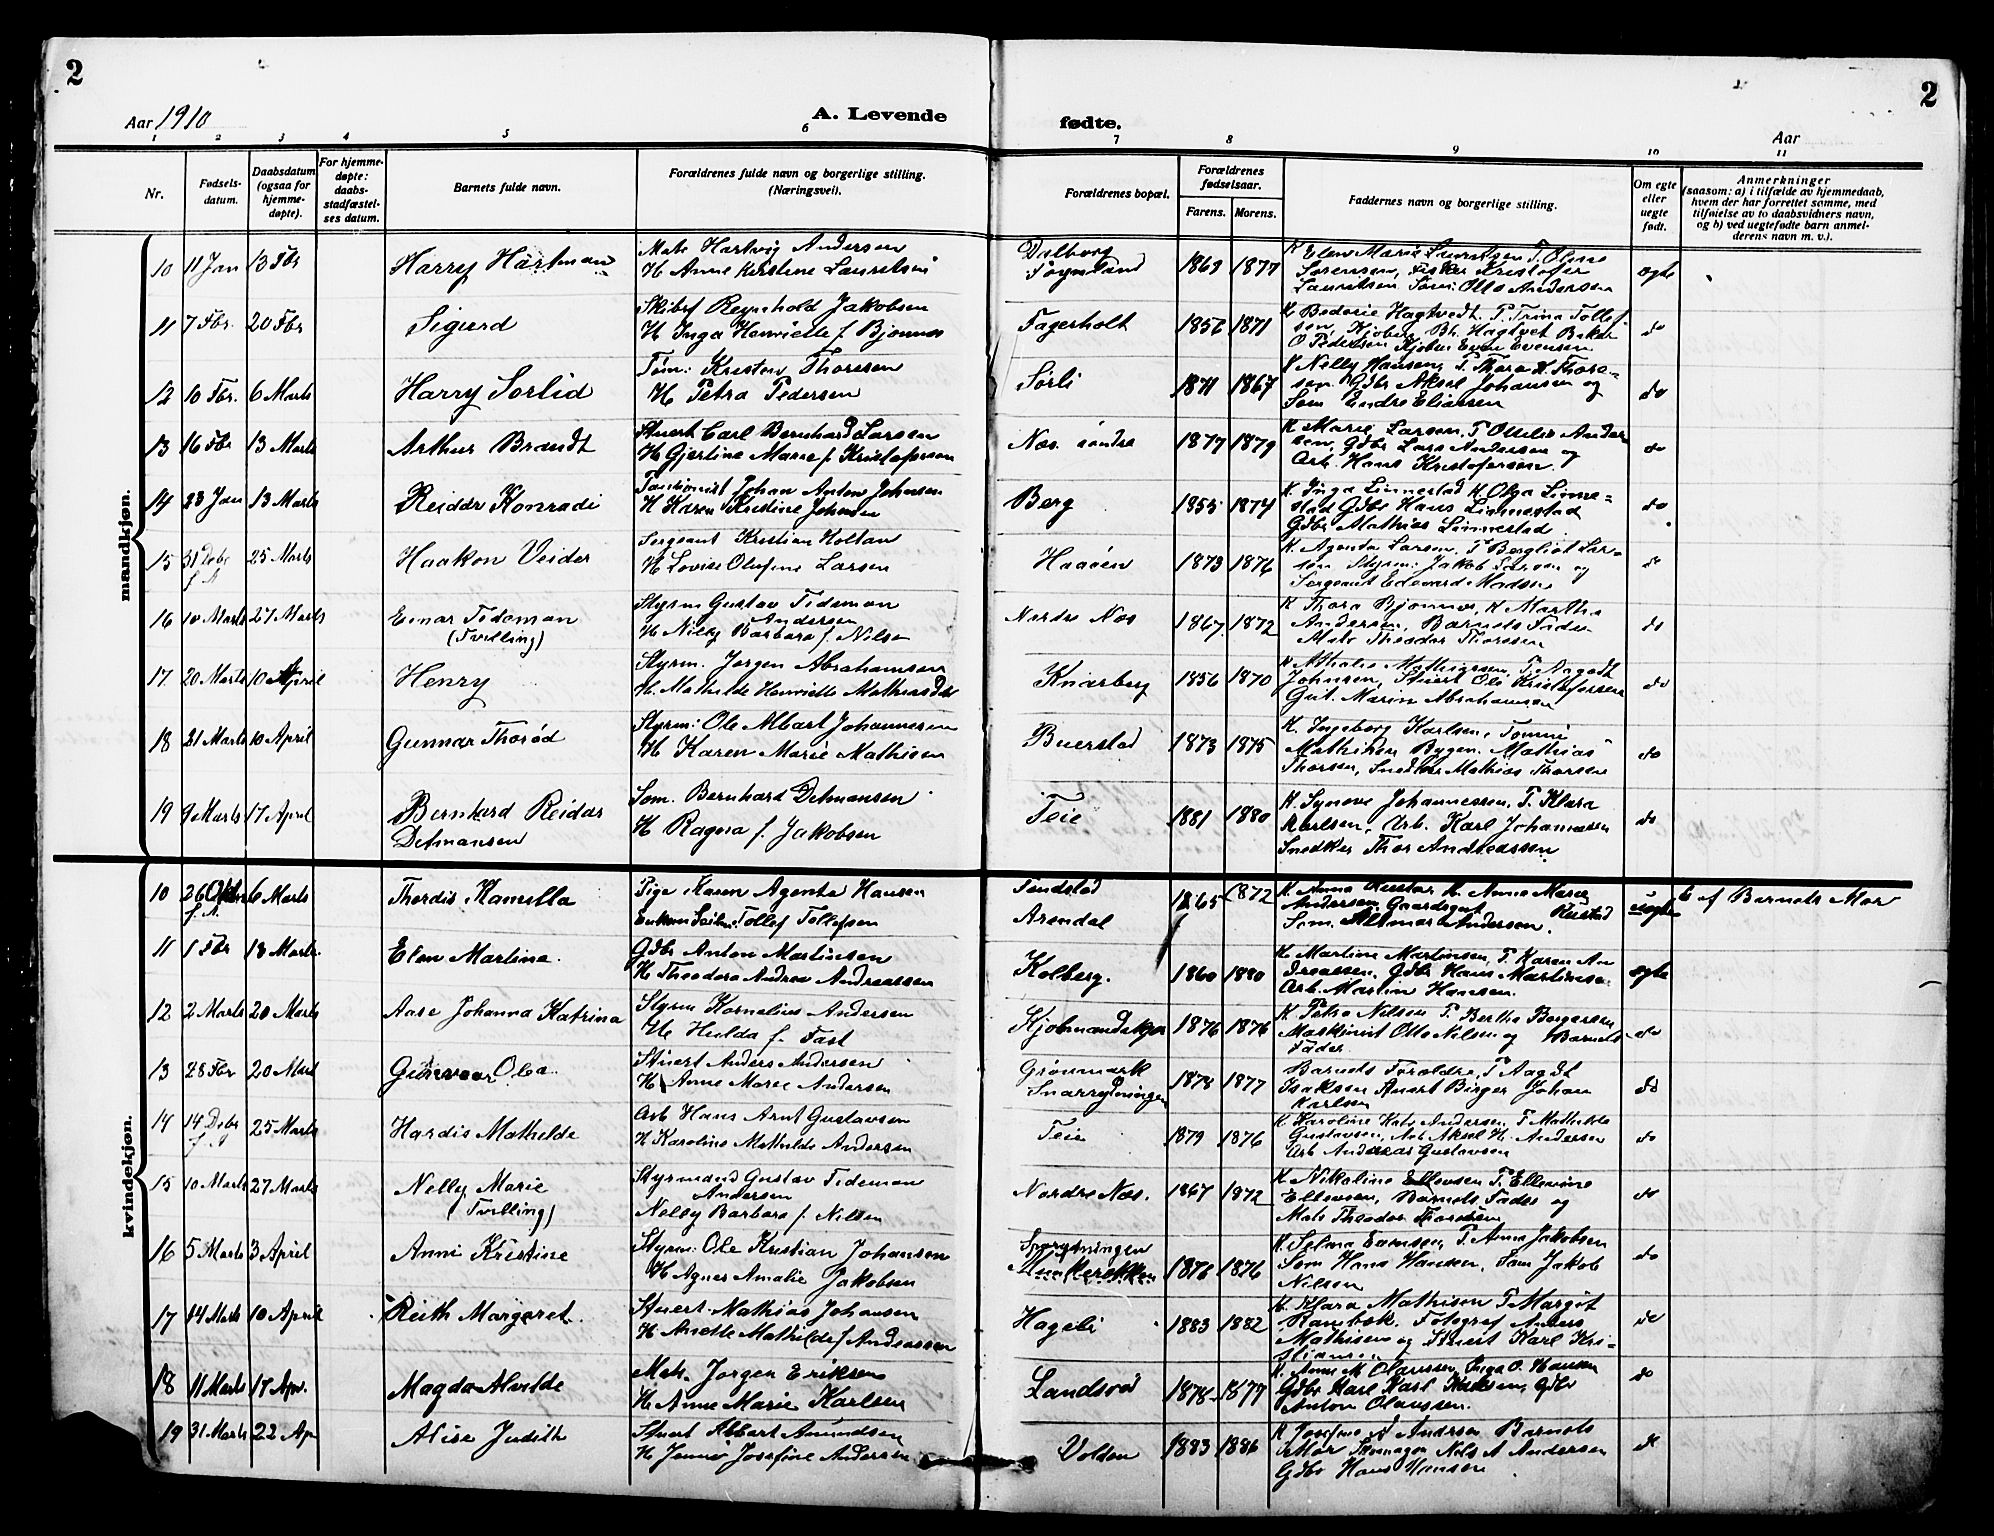 2
2
Aar 1910
A. Levende
fødte.
Aar
1 2 3 4 5 6 7 8 9 10 11
Nr.
Fødsels-
datum.
Daabsdatum
(ogsaa for
hjemme-
døpte).
For hjemme-
døpte:
daabs-
stadfæstel-
ses datum.
Barnets fulde navn.
Forældrenes fulde navn og borgerlige stilling.
(Næringsvei).
Forældrenes bopæl.
Forældrenes
fødselsaar.
Farens. Morens.
Faddernes navn og borgerlige stilling.
Om egte
eller
uegte
født.
Anmerkninger
(saasom: a) i tilfælde av hjemmedaab,
hvem der har forrettet samme, med
tilføielse av to daabsvidners navn,
og b) ved uegtefødte barn anmel-
derens navn m. v.).
mandkjøn.
10 11 Jan 13 Fbr Harry Hartman
Mats Hartvig Andersen
H Anne Kirstine Lauritsen
1869 1877
K Elen Marie Lauritsen T. Oline
Sørensen, Fisker Kristofer
Lauritsen Søm: Otto Andersen
egte
11 7 Fbr. 20 Fbr Sigurd
Skibsf Reynhold Jakobsen
H Inga Henriette f. Bjønnes
Fagerholt
1856 1871
do
12 10 Fbr. 6 Marts Harry Sørlid
Tøm: Kristen Thoresen
H Petra Pedersen
Sørli
1871 1867
K Nelly Hansen, T. Thora H. Thore-
sen, Gdbr Aksel Johansen og
Søm Endre Eliassen
do
13 16 Fbr 13 Marts Arthur Brandt
Stuert Carl Bernhard Larsen
H Gjertine Marie f. Kristofersen
Næs søndre
1877 1879
K Marie Larsen, T. Otilie Ander
sen, Gdbr Lars Andersen og
Arb. Hans Kristofersen.
do
14 23 Jan 13 Marts Reidar Konradi
Johan Anton Johnsen
H Karen Kristine Johnsen
Berg
1855 1874
K. Inga Linnestad K. Olga Linne-
stad Gdbr Hans Linnestad
Gdbr Mathias Linnestad
do
15 31 Dcbr f. A 25 Marts Haakon Veidar
Sergeant Kristian Holtan
H Lovise Olufine Larsen
Haaøen
1873 1876
K. Agenta Larsen, T Bergliot Lar-
sen Styrm: Jakob Larsen og
Sergeant Edevard Madsen
do
16 10 Marts 27 Marts Einar Tideman
(Tvilling)
Styrm Gustav Tideman
Andersen
H Nelly Barbara f. Nilsen
Nordre Næs
1867 1872
K Thora Bjønnes, K Martha
Andersen, Barnets Fader
Mats Theodor Thorsen
do
17 20 Marts 10 April Henry
Styrm. Jørgen Abrahamsen
H. Mathilde Henriette Mathiasdtr
Knarberg
1856 1870
K Athalie Mathiassen, T. Aagodt
Johnsen, Stuert Ole Kristofersen
Gut. Marin Abrahamsen
do
18 21 Marts 10 April Gunnar Thorød
Styrm: Ole Albart Johannesen
H Karen Marie Mathisen
Buerstad
1873 1875
K. Ingeborg Karlsen,
Mathisen Bygm. Mathias
Thorsen, Snedker Mathias Thorsen
do
19 9 Marts 17 April Bernhard Reidar
Detmansen
Søm. Bernhard Detmansen
H Ragna f. Jakobsen
Teie
1881 1880
K. Synøve Johannessen, T. Klara
Karlsen, Arb. Karl Johannesen
Snedker Thor Andreassen
do
kvindekjøn.
10 26 Oktbr f. A. 6 Marts Thordis Kamilla
Pige Karen Agente Hansen
Tollef Tollefsen
Arendal
1865 1872
K. Anna Rustad, K. Anna Marie
Andersen, Gaardsgut Rustad
Søm. Andersen.
uegte
af Barnets Mor
11 1 Fbr 13 Marts Elen Martine.
Gdbr Anton Martinsen
H Theodora Andrea Andreassen
Kolberg.
1860 1880
K Martine Martinsen, T. Karen An
dreassen, Gdbr Hans Martinsen
Arb. Martin Hansen.
egte
12 2 Marts 20 Marts Aase Johanna Katrina
Styrm Kornelius Andersen
H Hulda f. Fast
1876 1876
K. Petra Nilsen T. Bertha Borgersen
Maskinist Otto Nilsen og Barnets
Fader
do
13 28 Fbr 20 Marts Gunvor Olea
Stuert Anders Andersen
H Anne Marie Andersen
Grønmark
1874 1877
Barnets Forældre, T Aagodt
Isaksen Anert Birger Johan
Karlsen
do
14 14 Dcbr f. A 25 Marts Hardis Mathilde
Arb Hans Arnt Gustavsen
H Karoline Mathilde Andersen
Teie
1879 1876
K Karoline Andersen, T Mathilde
Gustavsen, Arb Aksel H. Andersen
Arb Andreas Gustavsen
do
15 10 Marts 27 Marts Nelly Marie
(Tvilling)
Styrmand Gustav Tideman
Andersen
Nelly Barbara f. Nilsen
Nordre Næs.
1867 1872
K Nikoline Ellevsen T. Ellevine
Ellevsen, Barnets Fader og
Mats Theodor Thorsen
do
16 5 Marts 3 April Anni Kristine
Styrm: Ole Kristian Johansen
H Agnes Amalie Jakobsen
1876 1876
K. Selma T. Anna Jakobsen
Søm Hans Hansen, Søm Jakob
Nilsen
do
17 14 Marts 10 April Ruth Margaret.
Stuert Mathias Johansen
H Anette Mathilde f Andreassen
Hageli
1883 1882
K. Klara Mathisen T Margit
Rambæk. Fotograf Anders
Mathisen og Stuert Karl Kri-
stiansen
do
18 11 Marts 17 Apr. Magda Alvilde
Mats. Jørgen Eriksen
H Anne Marie Karlsen
Landsrød
1878 1877
K. Anne M. Olaussen, Inga O. Hansen
Gdbr Karl Gdbr
Anton Olaussen.
do
19 31 Marts 22 Apr Alise Judith
Stuert Albart Amundsen
H Jenni Josefine Andersen
Volden
1883 1886
K Josefine A Andersen Barnets
Mor Nils A Andersen
Gdbr Hans Hansen
do